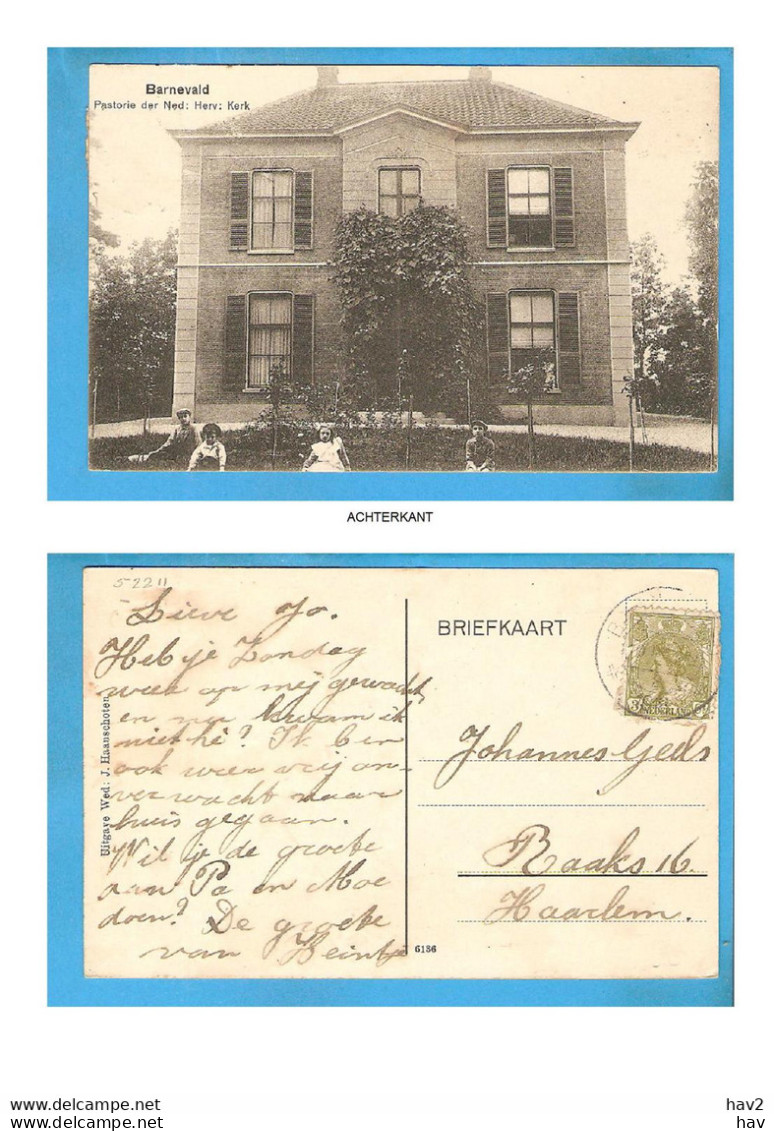 Barnevald
Pastorie der Ned: Herv: Kerk
ACHTERKANT
52211
Lieve Jo.
Heb je Zondag
weer op mij gewacht,
en nu kwam ik
niet hè? Ik ben
ook weer vrij on-
verwacht naar
huis gegaan.
Wil je de groete
aan Pa en Moe
doen? De groete
van Heintje
Uitgave Wed: J. Haanschoten
BRIEFKAART
3
NEDERLAND
Johannes Geels
Raaks 16.
Haarlem.
6136
hav2
www.delcampe.net
hav